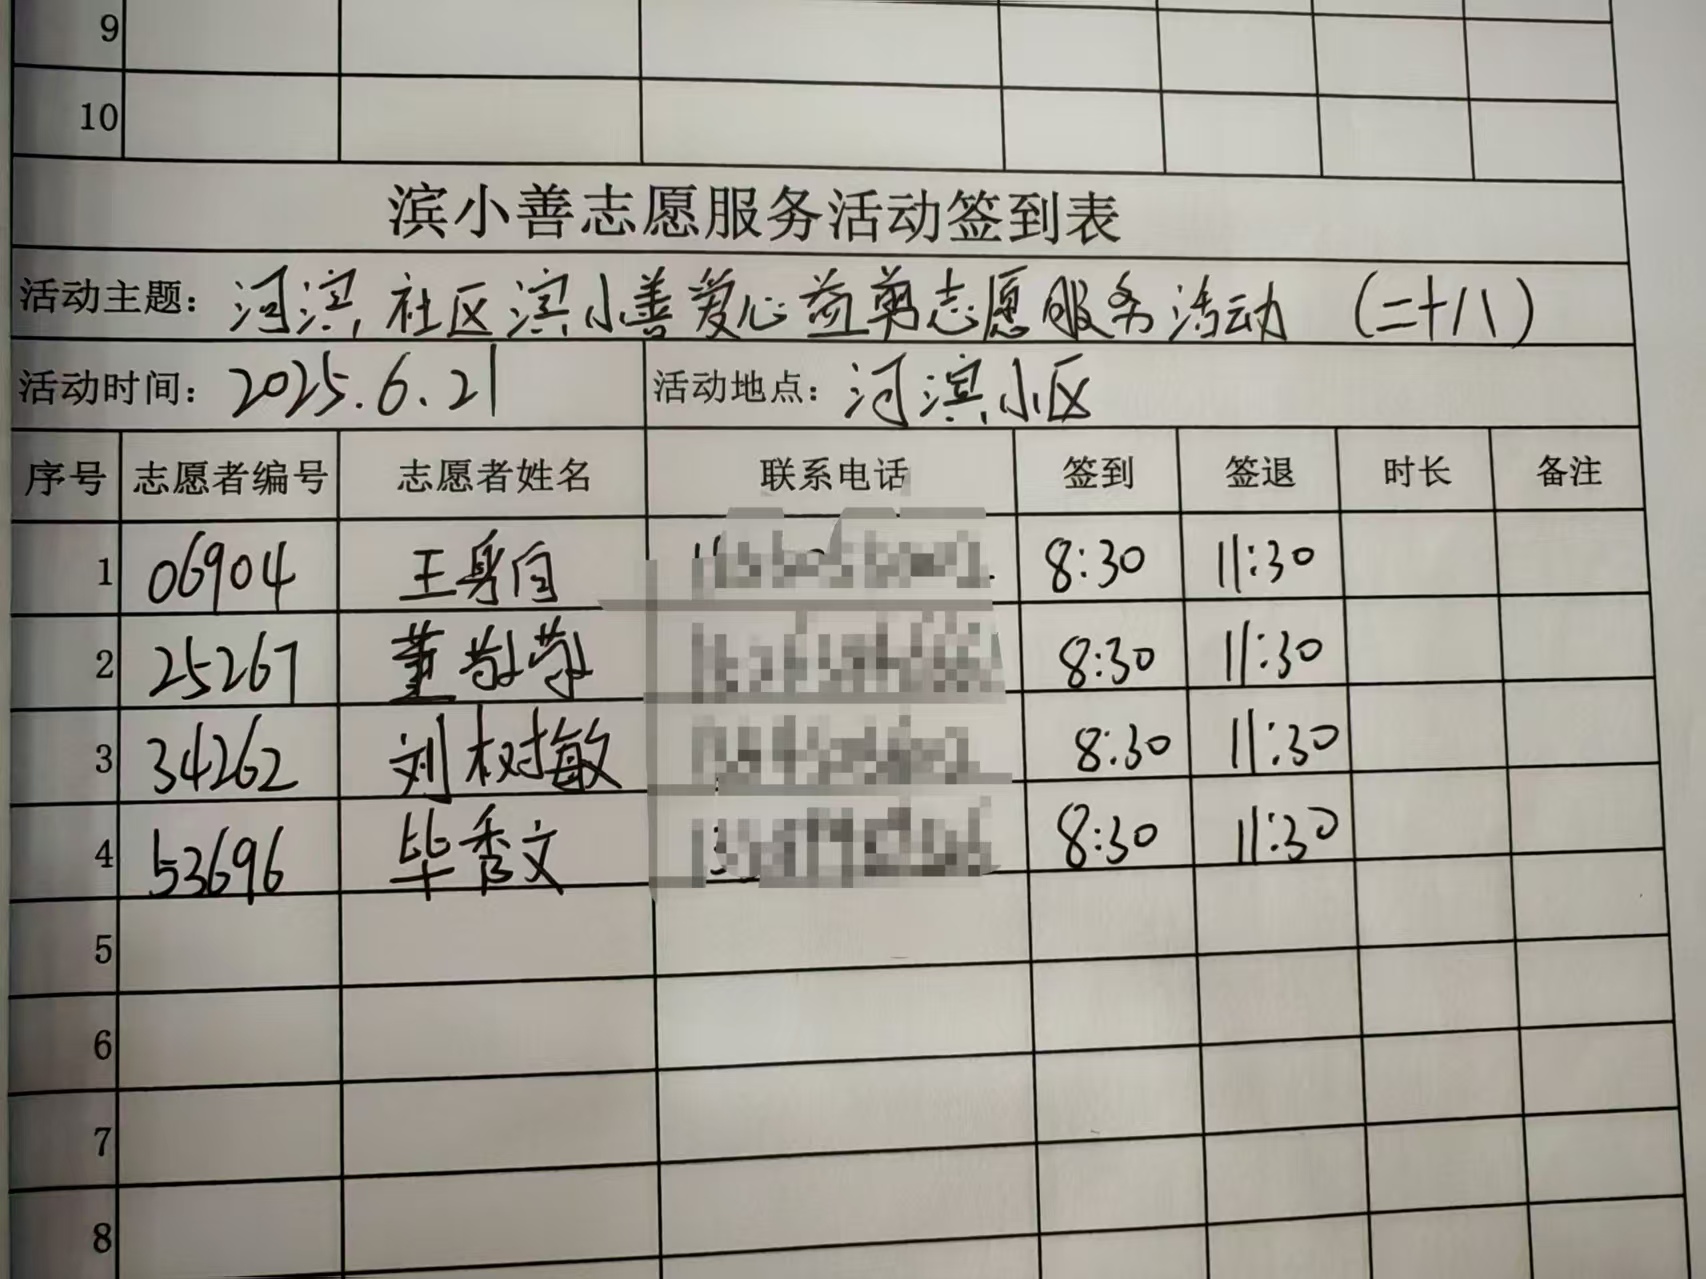 9
10
滨小善志愿服务活动签到表
活动主题: 河滨社区滨小善爱心益剪志愿服务活动 (二十八)
活动时间: 2025.6.21 活动地点: 河滨小区
序号 志愿者编号 志愿者姓名 联系电话 签到 签退 时长 备注
1 06904 王 8:30 11:30
2 25267 董 8:30 11:30
3 34262 刘树敏 8:30 11:30
4 53696 毕秀文 8:30 11:30
5
6
7
8